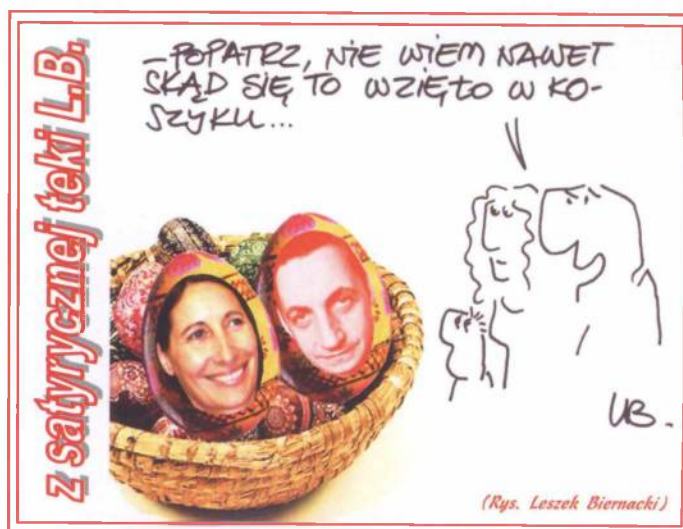 z satyrycznej teki L.B.
– POPATRZ, NIE WIEM NAWET
SKĄD SIĘ TO WZIĘŁO W KO-
SZYKU...
LB.
(Rys. Leszek Biernacki)